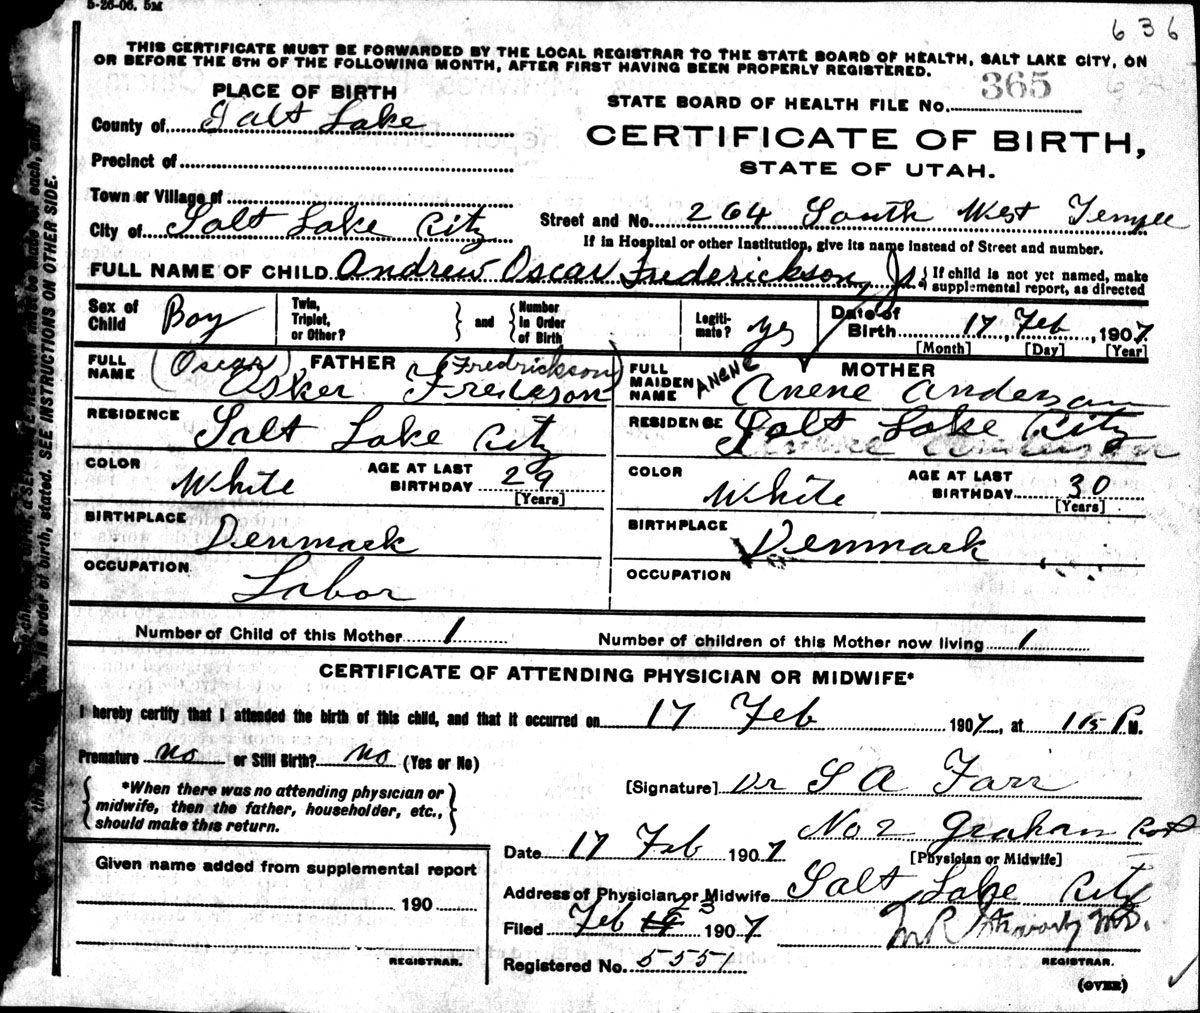 5-26-06. 5M
636
THIS CERTIFICATE MUST BE FORWARDED BY THE LOCAL REGISTRAR TO THE STATE BOARD OF HEALTH, SALT LAKE CITY, ON
OR BEFORE THE 5TH OF THE FOLLOWING MONTH, AFTER FIRST HAVING BEEN PROPERLY REGISTERED.
PLACE OF BIRTH
STATE BOARD OF HEALTH FILE No. 365
County of Salt Lake
CERTIFICATE OF BIRTH,
STATE OF UTAH.
Precinct of
Town or Village of
City of Salt Lake City
Street and No. 264 South West Temple
If in Hospital or other Institution, give its name instead of Street and number.
FULL NAME OF CHILD Andrew Oscar Frederickson, Jr. { If child is not yet named, make
supplemental report, as directed
Sex of Child Boy
Twin, Triplet, or Other? } and { Number In Order of Birth
Legiti-mate? yes
Date of Birth 17 Feb, 1907.
[Month] [Day] [Year]
FULL NAME FATHER (Oscar) (Fredrickson)
Osker Frederson
FULL MAIDEN NAME MOTHER ANENE
Anene Anderson
RESIDENCE Salt Lake City
RESIDENCE Salt Lake City
COLOR White AGE AT LAST BIRTHDAY 29 [Years]
COLOR White AGE AT LAST BIRTHDAY 30 [Years]
BIRTHPLACE Denmark
BIRTHPLACE Denmark
OCCUPATION Labor
OCCUPATION
Number of Child of this Mother 1 Number of children of this Mother now living 1
CERTIFICATE OF ATTENDING PHYSICIAN OR MIDWIFE*
I hereby certify that I attended the birth of this child, and that it occurred on 17 Feb 1907, at 1 15 P M.
Premature no or Still Birth? no (Yes or No)
{ *When there was no attending physician or
midwife, then the father, householder, etc.,
should make this return. }
[Signature] Dr S A Farr
No 2 Graham
[Physician or Midwife]
Date 17 Feb 1907
Given name added from supplemental report
190
REGISTRAR.
Address of Physician or Midwife Salt Lake City
Filed Feb 23 1907
M.D.
REGISTRAR.
Registered No. 5551
(OVER)
in order of birth, stated. SEE INSTRUCTIONS ON OTHER SIDE.